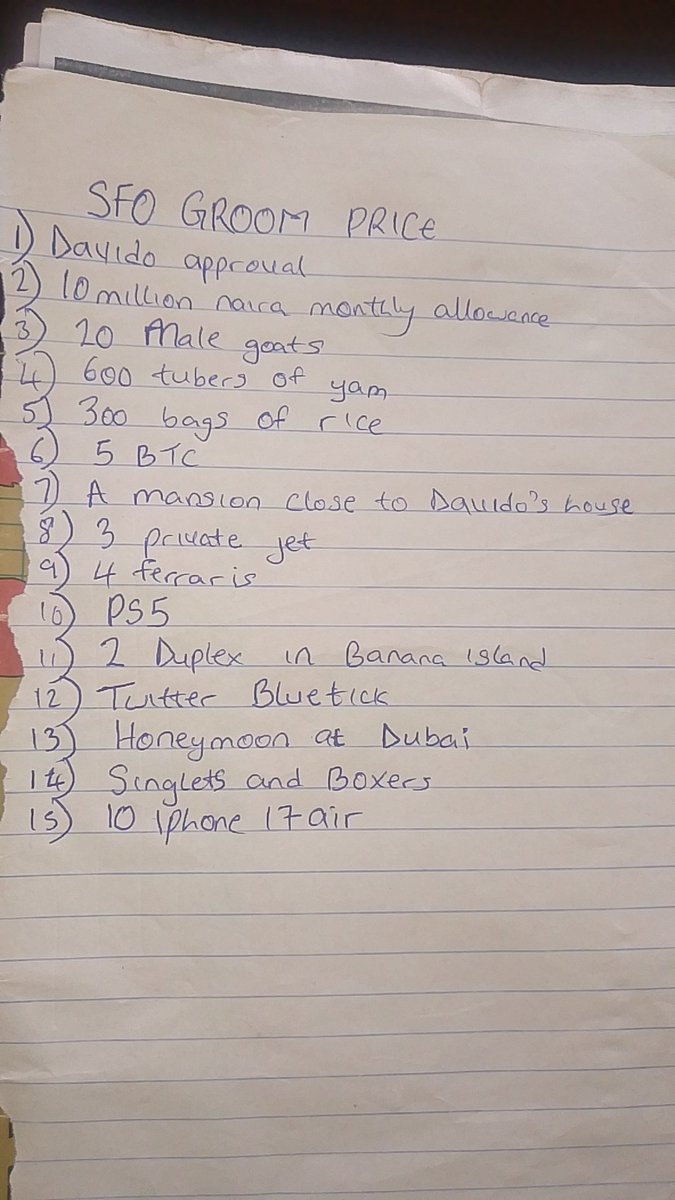 SFO GROOM PRICE
1) Davido approval
2) 10 million naira monthly allowance
3) 20 Male goats
4) 600 tubers of yam
5) 300 bags of rice
6) 5 BTC
7) A mansion close to Davido's house
8) 3 private jet
9) 4 ferraris
10) PS5
11) 2 Duplex in Banana island
12) Twitter Bluetick
13) Honeymoon at Dubai
14) Singlets and Boxers
15) 10 iphone 17 air